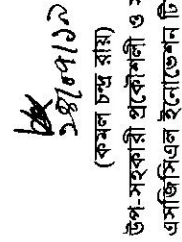 (কমল চন্দ্র রায়)
উপ-সহকারী প্রকৌশলী ও স
এসজিসিএল ইনোভেশন টি